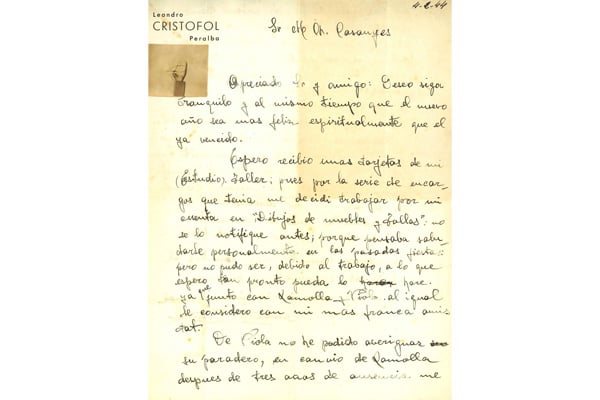 Leandro
CRISTOFOL
Peralba
4-2-44
Sr M. A. Casanyes
Apreciado Sr y amigo: Deseo siga
tranquilo y al mismo tiempo que el nuevo
año sea mas feliz espiritualmente que el
ya vencido.
Espero recibio unas tarjetas de mi
(Estudio) Taller; pues por la serie de encar-
gos que tenia me decidi trabajar por mi
cuenta en "Dibujos de muebles y Tallas": no
se lo notifique antes; porque pensaba salu-
darle personalmente en las pasadas fiestas:
pero no pudo ser, debido al trabajo, a lo que
espero tan pronto pueda lo hare.
ya que junto con Lamolla y Viola al igual
le considero con mi mas franca amis
tat.
De Viola no he podido averiguar
su paradero, en canvio de Lamolla
despues de tres años de ausencia me